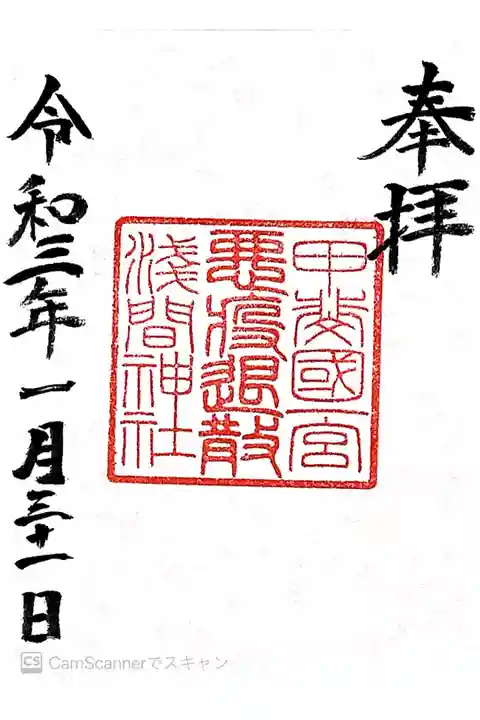 奉拝
甲斐國一宮
悪疫退散
浅間神社
令和三年一月三十一日
CS CamScannerでスキャン